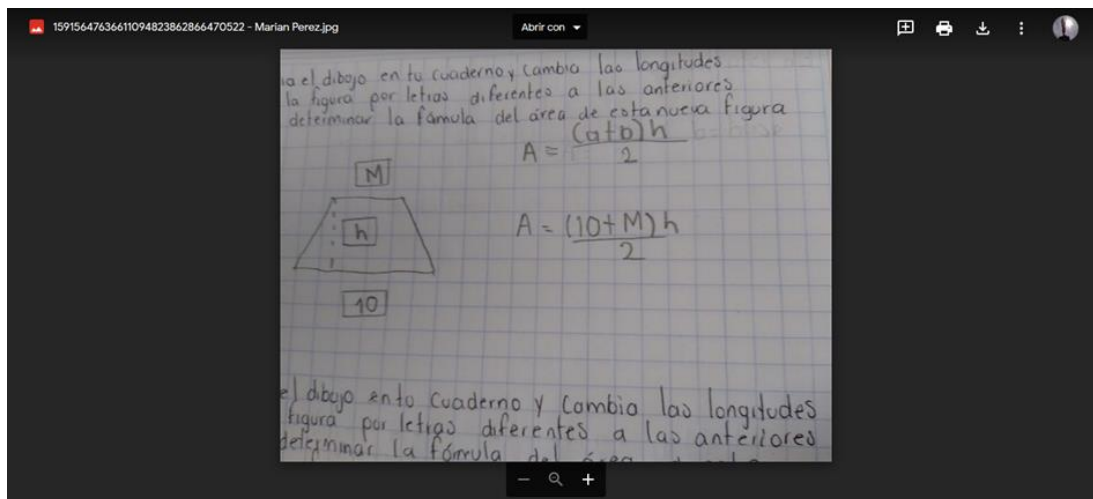 15915647636611094823862866470522 - Marian Perez.jpg
Abrir con
el dibojo en tu cuaderno y cambia las longitudes
la figura por letras diferentes a las anteriores
determinar la fámula del área de esta nueva figura
A = (a+b)h
2
M
h
A = (10+M)h
2
10
el dibujo en tu cuaderno y Cambia las longitudes
figura por letras diferentes a las anteriores
determinar la fórmula del área